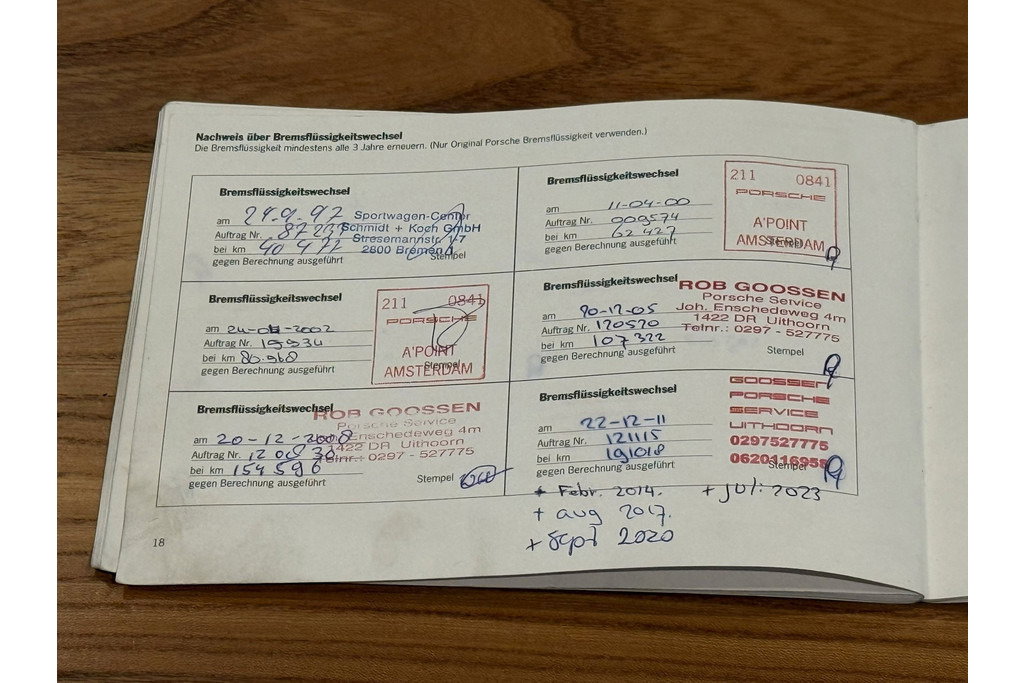 Nachweis über Bremsflüssigkeitswechsel
Die Bremsflüssigkeit mindestens alle 3 Jahre erneuern. (Nur Original Porsche Bremsflüssigkeit verwenden.)
Bremsflüssigkeitswechsel
am
Auftrag Nr.
bei km 40 472
gegen Berechnung ausgeführt
Sportwagen-Center
Schmidt + Koch GmbH
Stresemannstr. 1-7
2800 Bremen 1
Stempel
Bremsflüssigkeitswechsel
am 11-04-00
Auftrag Nr. 009574
bei km 62 427
gegen Berechnung ausgeführt
211 0841
PORSCHE
A'POINT
AMSTERDAM
Stempel
Bremsflüssigkeitswechsel
am
Auftrag Nr. 19934
bei km 80.968
gegen Berechnung ausgeführt
211 0841
PORSCHE
A'POINT
AMSTERDAM
Stempel
Bremsflüssigkeitswechsel
am 20-12-05
Auftrag Nr. 120520
bei km 107 322
gegen Berechnung ausgeführt
ROB GOOSSEN
Porsche Service
Joh. Enschedeweg 4m
1422 DR Uithoorn
Telnr.: 0297 - 527775
Stempel
Bremsflüssigkeitswechsel
am 20-12-2008
Auftrag Nr. 120830
bei km 154596
gegen Berechnung ausgeführt
ROB GOOSSEN
Porsche Service
Enschedeweg 4m
1422 DR Uithoorn
Telnr.: 0297 - 527775
Stempel
Bremsflüssigkeitswechsel
am 22-12-11
Auftrag Nr. 121115
bei km 191018
gegen Berechnung ausgeführt
GOOSSEN
PORSCHE
SERVICE
UITHOORN
0297527775
0620116958
Stempel
+ Febr. 2014.
+ Juli 2023
+ aug 2017.
+ Sept 2020
18